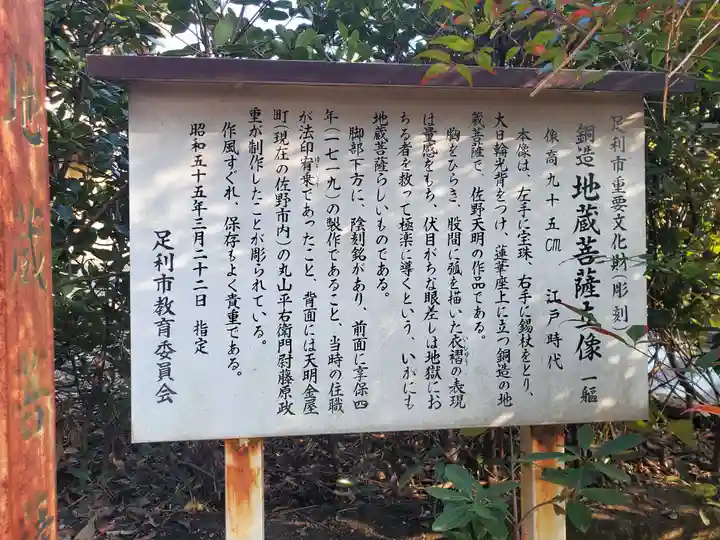 足利市重要文化財(彫刻)
銅造 地蔵菩薩立像 一軀
像高九十五cm 江戸時代
本像は、左手に宝珠、右手に錫杖をとり、
大日輪光背をつけ、蓮華座上に立つ銅造の地
蔵菩薩で、佐野天明の作品である。
胸をひらき、股間に弧を描いた衣褶の表現
は量感をもち、伏目がちな眼差しは地獄にお
ちる者を救って極楽に導くという、いかにも
地蔵菩薩らしいものである。
脚部下方に、陰刻銘があり、前面に享保四
年(一七一九)の製作であること、当時の住職
が法印宥乗であったこと、背面には天明金屋
町(現在の佐野市内)の丸山平右衛門尉藤原政
重が制作したことが彫られている。
作風すぐれ、保存もよく貴重である。
昭和五十五年三月二十二日 指定
足利市教育委員会
地蔵菩